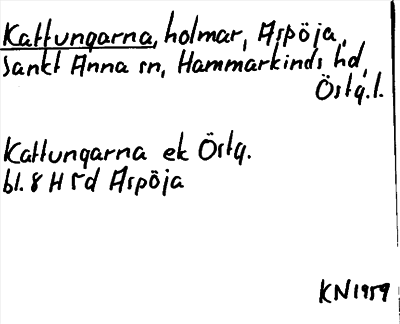 Kattungarna, holmar, Aspöja,
Sankt Anna sn, Hammarkinds hd,
Östg.l.
Kattungarna ek Östg.
bl. 8 H 5d Aspöja
KN 1959